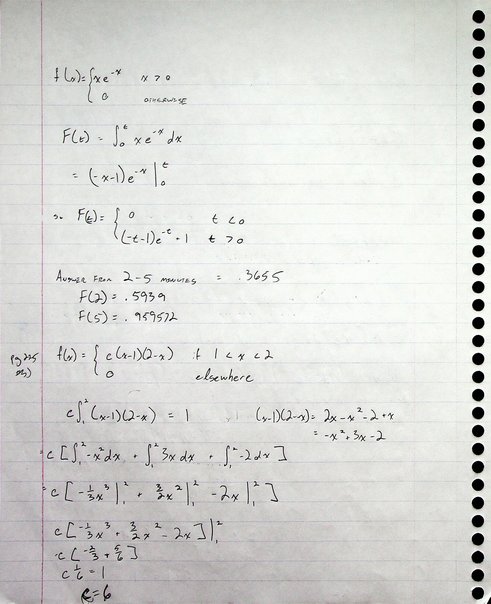 f(x) = { xe^-x x > 0
0 OTHERWISE
F(t) = ∫₀^t xe^-x dx
= (-x-1)e^-x |₀^t
so F(t) = { 0 t < 0
(-t-1)e^-t + 1 t > 0
ANSWER FROM 2-5 MINUTES = .3655
F(2) = .5939
F(5) = .959572
pg 225
f(x) = { c(x-1)(2-x) if 1 < x < 2
0 elsewhere
c∫₁²(x-1)(2-x) = 1 (x-1)(2-x) = 2x-x²-2+x
= -x²+3x-2
= c[∫₁² -x²dx + ∫₁² 3x dx + ∫₁² -2dx]
= c[-1/3x³|₁² + 3/2x²|₁² - 2x|₁²]
c[-1/3x³ + 3/2x² - 2x]|₁²
c[-2/3 + 5/6]
c 1/6 = 1
c = 6